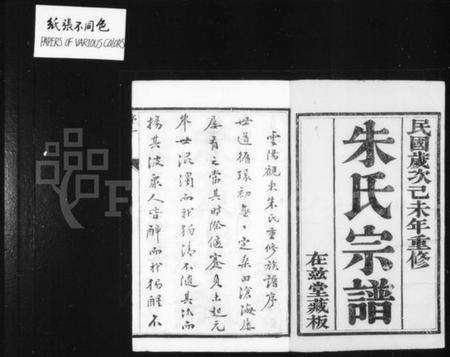 紙張不同色
PAPERS OF VARIOUS COLORS
民國歲次己未年重修
朱氏宗譜
在茲堂藏板
雲陽觀東朱氏重修族譜序
世道循環初無一定桑田滄海屢
屢有之當其時際偃蹇貞下起元
舉世混濁而我獨清不隨其流而
揚其波衆人皆醉而我獨醒不